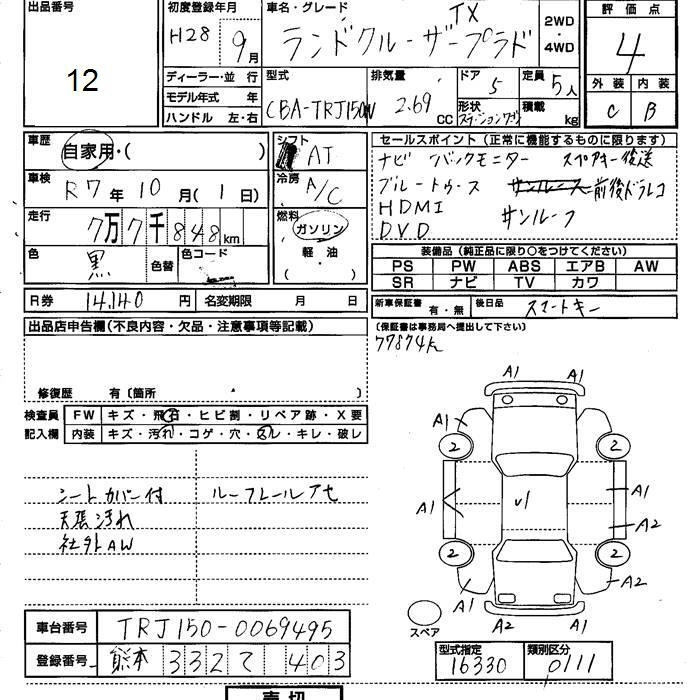 出品番号
12
初度登録年月
H28 9月
車名・グレード
TX
ランドクルーザープラド
2WD・4WD
評価点
4
外装 内装
C B
ディーラー・並行
モデル年式 年
ハンドル 左・右
型式
CBA-TRJ150W
排気量
2.69 CC
ドア
5
形状
ステーションワゴン
定員
5人
積載
kg
車歴
自家用・( )
車検
R7年10月(1日)
走行
7万7千848km
色
黒
色替
色コード
シフト
AT
冷房
A/C
燃料
ガソリン
軽油
( )
セールスポイント(正常に機能するものに限ります)
ナビ バックモニター スペアキー後送
ブルートゥース サンルーフ 前後ドラレコ
HDMI サンルーフ
DVD
装備品(純正品に限り○をつけてください)
PS PW ABS エアB AW
SR ナビ TV カワ
R券 14,140円 名変期限 月 日
新車保証書 有・無 後日品 スマートキー
(保証書は事務局へ提出して下さい)
77874k
出品店申告欄(不良内容・欠品・注意事項等記載)
修復歴 有〔箇所 〕
検査員記入欄
FW キズ・飛石・ヒビ割・リペア跡・X要
内装 キズ・汚れ・コゲ・穴・スレ・キレ・破レ
シートカバー付 ルーフレールアセ
天張汚れ
社外AW
A1 A1
A1
2 2
A1 √1 A1
A2
2 2
A1 A2
A2 A1
スペア
車台番号 TRJ150-0069495
登録番号 熊本 332 て 403
型式指定 類別区分
16330 0111
売切